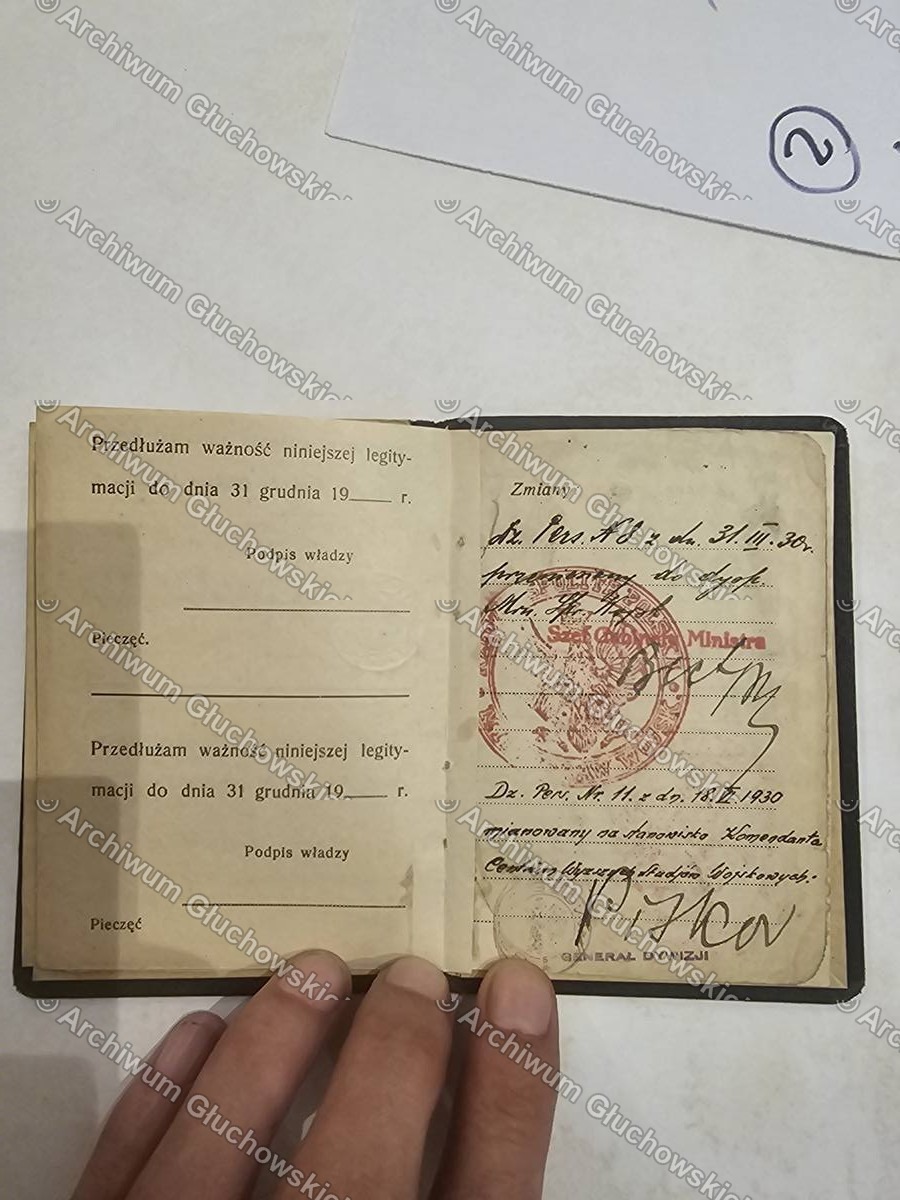 2
Przedłużam ważność niniejszej legity-
macji do dnia 31 grudnia 19____ r.
Podpis władzy
Pieczęć.
Przedłużam ważność niniejszej legity-
macji do dnia 31 grudnia 19____ r.
Podpis władzy
Pieczęć
Zmiany
Dz. Pers. N 8 z dn. 31.III.30r.
przeniesiony do dysp.
Min. Spr. Wojsk.
Szef Gabinetu Ministra
Beck
Dz. Pers. Nr. 11. z dn. 18.VI.1930
mianowany na stanowisko Komendanta
Centrum Wyższych Studjów Wojskowych.
GENERAŁ DYWIZJI
© Archiwum Głuchowskich